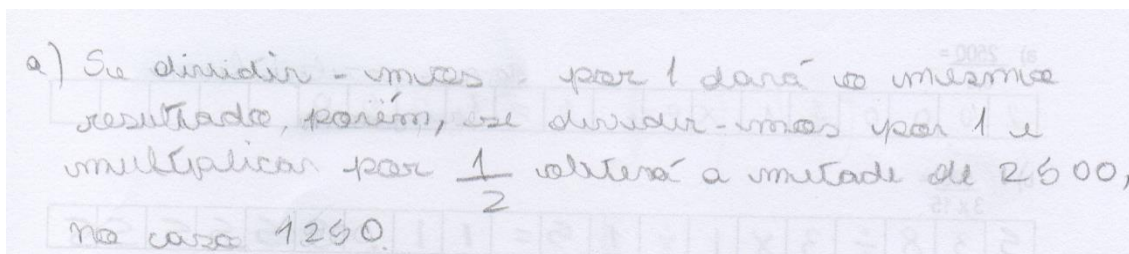 a) Se dividir-mos por 1 dará o mesmo
resultado, porém, se dividir-mos por 1 e
multiplicar por 1/2 obterá a metade de 2500,
no caso 1250.